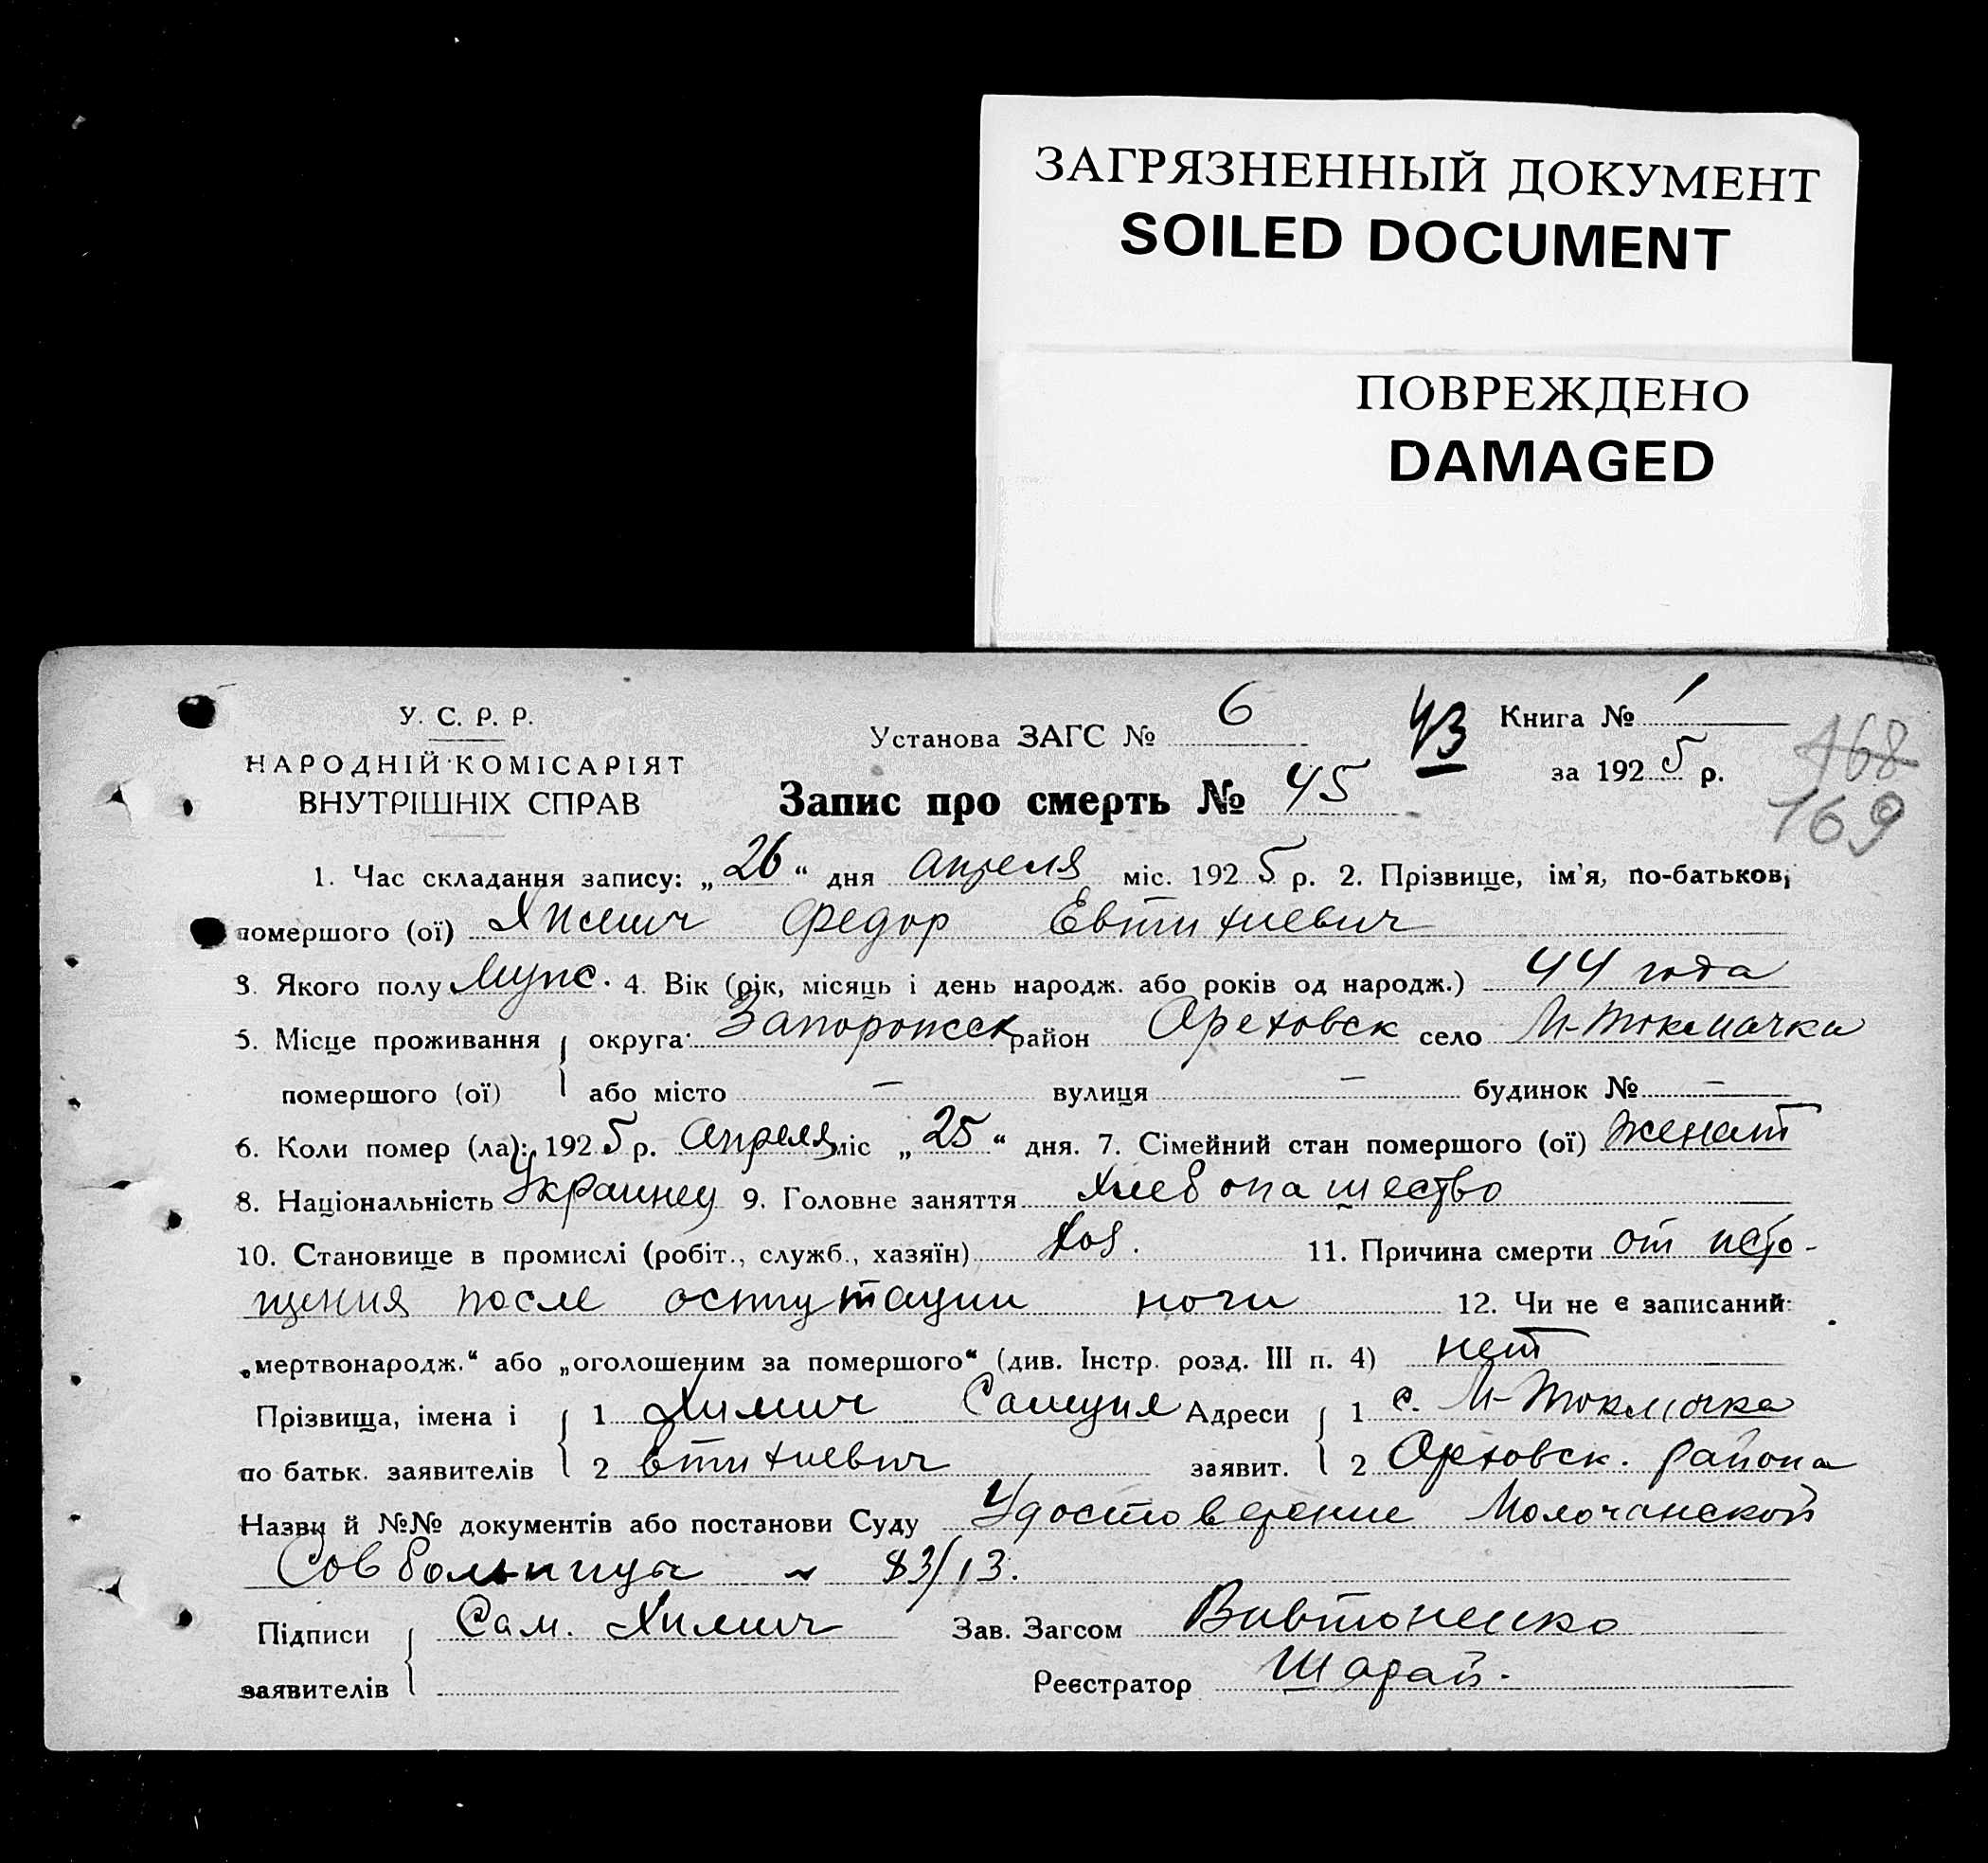 ЗАГРЯЗНЕННЫЙ ДОКУМЕНТ
SOILED DOCUMENT
ПОВРЕЖДЕНО
DAMAGED
У. С. Р. Р.
НАРОДНІЙ КОМІСАРІЯТ
ВНУТРІШНІХ СПРАВ
Установа ЗАГС № 6
43
Книга № 1
за 1925 р.
168
169
Запис про смерть № 45
1. Час складання запису: „26“ дня апреля міс. 1925 р. 2. Прізвище, ім'я, по-батькові
помершого (ої) Химич Федор Евтихиевич
3. Якого полу Мужс. 4. Вік (рік, місяць і день народж. або років од народж.) 44 года
5. Місце проживання округа: Запорожск район Ореховск село М-Токмачка
помершого (ої) або місто — вулиця — будинок № —
6. Коли помер (ла): 1925 р. Апреля міс „25“ дня. 7. Сімейний стан помершого (ої) женат
8. Національність Украинец 9. Головне заняття хлебопашество
10. Становище в промислі (робіт., служб., хазяїн) Хоз. 11. Причина смерти от исто-
щения после ноги 12. Чи не є записаний:
„мертвонародж.“ або „оголошеним за помершого“ (див. Інстр. розд. III п. 4) нет
Прізвища, імена і 1 Химич Самуил Адреси 1 с. М-Токмачка
по батьк. заявителів 2 втихиевич заявит. 2 Орховск. района
Назви й №№ документів або постанови Суду Удостоверение Молочанской
Совбольницы ~ 83/13.
Підписи Сам. Химич Зав. Загсом
заявителів Реєстратор Шарай.